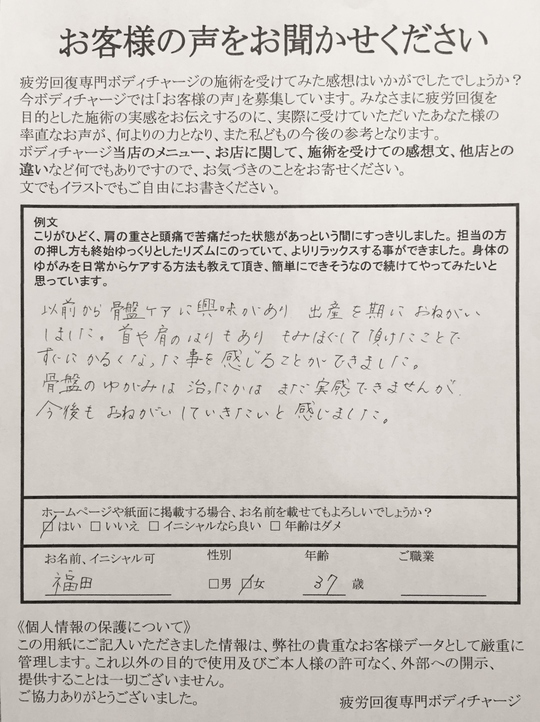 お客様の声をお聞かせください
疲労回復専門ボディチャージの施術を受けてみた感想はいかがでしたでしょうか?
今ボディチャージでは「お客様の声」を募集しています。みなさまに疲労回復を
目的とした施術の実感をお伝えするのに、実際に受けていただいたあなた様の
率直なお声が、何よりの力となり、また私どもの今後の参考となります。
ボディチャージ当店のメニュー、お店に関して、施術を受けての感想文、他店との
違いなど何でもありですので、お気づきのことをお寄せください。
文でもイラストでもご自由にお書きください。
例文
こりがひどく、肩の重さと頭痛で苦痛だった状態があっという間にすっきりしました。担当の方
の押し方も終始ゆっくりとしたリズムにのっていて、よりリラックスする事ができました。身体の
ゆがみを日常からケアする方法も教えて頂き、簡単にできそうなので続けてやってみたいと
思っています。
以前から骨盤ケアに興味があり 出産を期におねがい
しました。首や肩のはりもあり もみほぐして頂けたことで
すぐにかるくなった事を感じることができました。
骨盤のゆがみは治ったかは まだ実感できませんが
今後も おねがいしていきたいと 感じました。
ホームページや紙面に掲載する場合、お名前を載せてもよろしいでしょうか?
☑はい □いいえ □イニシャルなら良い □年齢はダメ
お名前、イニシャル可 性別 年齢 ご職業
福田 □男 ☑女 37 歳
《個人情報の保護について》
この用紙にご記入いただきました情報は、弊社の貴重なお客様データとして厳重に
管理します。これ以外の目的で使用及びご本人様の許可なく、外部への開示、
提供することは一切ございません。
ご協力ありがとうございました。
疲労回復専門ボディチャージ